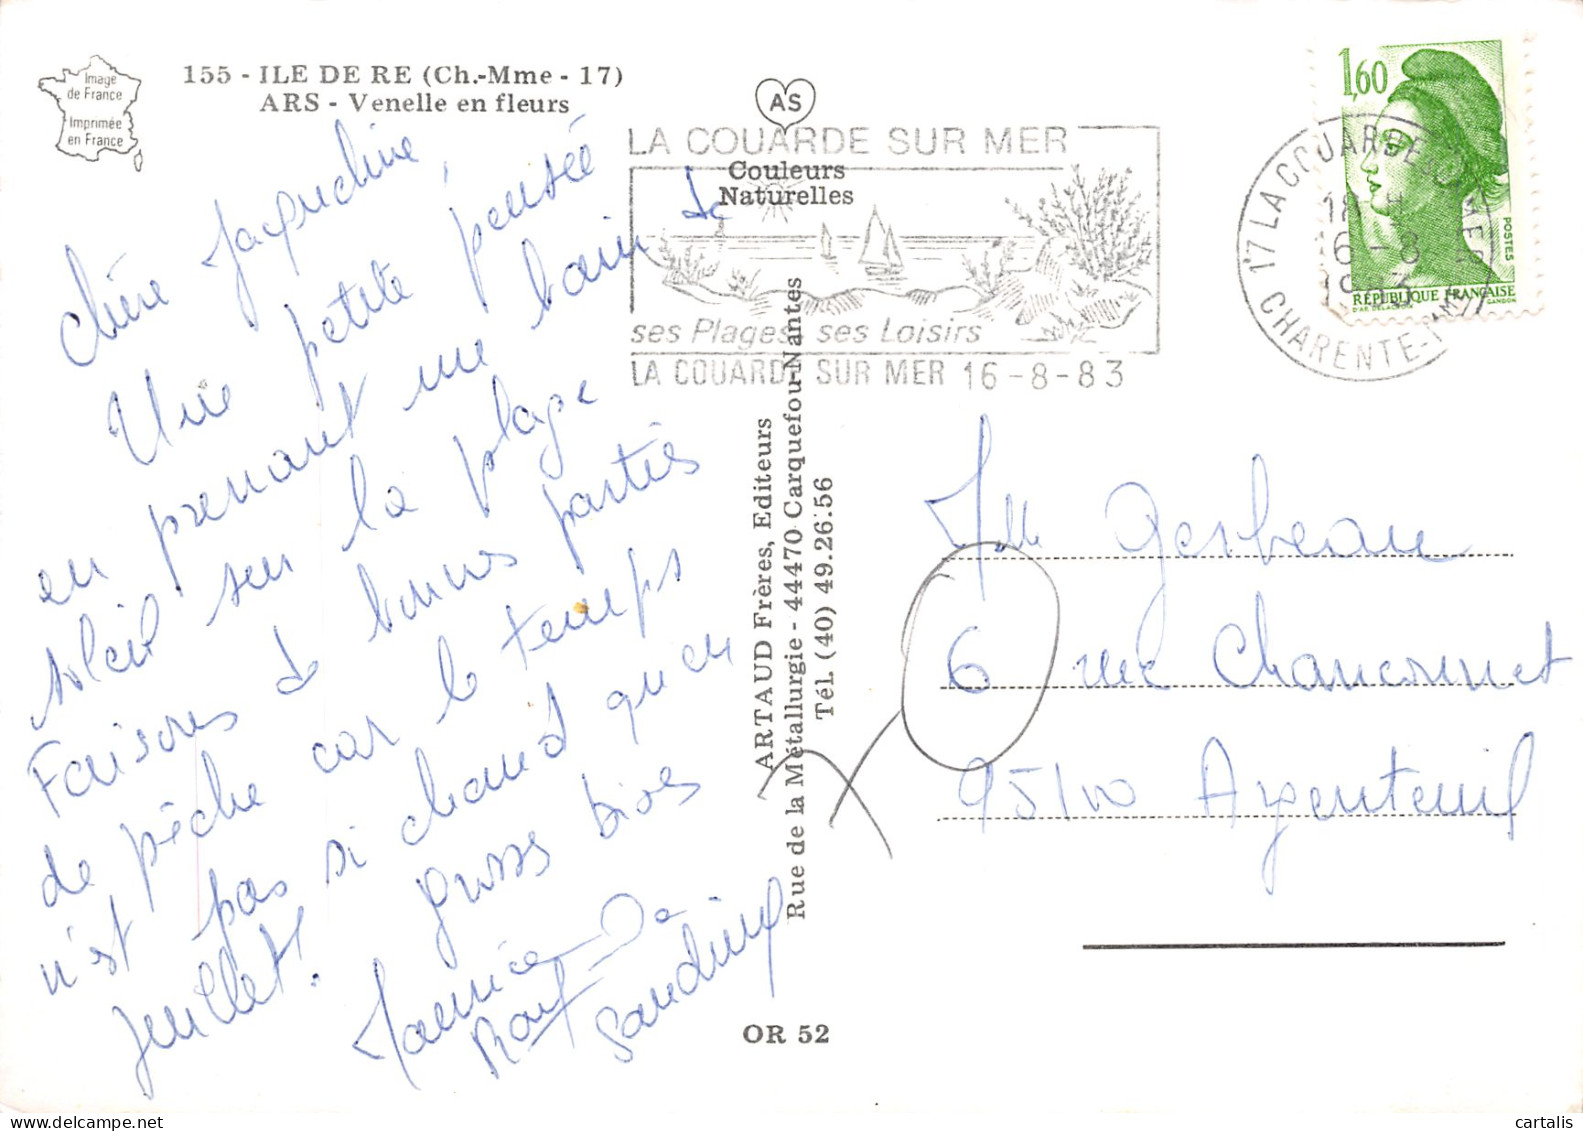 Image
de France
Imprimée
en France
155 - ILE DE RE (Ch.-Mme - 17)
ARS - Venelle en fleurs
AS
Couleurs
Naturelles
LA COUARDE SUR MER
ses Plages ses Loisirs
LA COUARDE SUR MER 16-8-83
1,60
POSTES
RÉPUBLIQUE FRANÇAISE
D'AP. DELACROIX
GANDON
17 LA COUARDE SUR MER
18 H
16-8
1983
CHARENTE-MME
Chère Jacqueline,
Une petite pensée
en prenant un bain de
soleil sur la plage
Faisons de bonnes parties
de pêche car le temps
n'est pas si chaud qu'en
Juillet.
grosses bises
Sandrine
ARTAUD Frères, Editeurs
Rue de la Métallurgie - 44470 Carquefou-Nantes
Tél. (40) 49.26.56
OR 52
Mlle Gerbeau
6 rue Chanconnet
95100 Argenteuil
cartalis